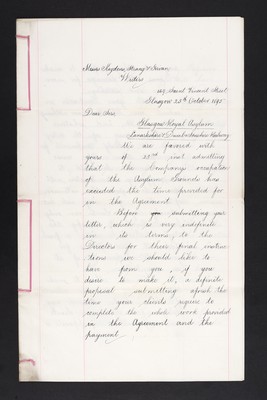 Messrs Keydens, Strang & Girvan
Writers
149 Saint Vincent Street
Glasgow 25th October 1892
Dear Sirs,
Glasgow Royal Asylum
Lanarkshire & Dumbartonshire Railway
We are favored with
yours of 22nd inst admitting
that the Company's occupation
of the Asylum Grounds has
exceeded the time provided for
in the Agreement
Before you submitting your
letter, which is very indefinite
in its terms, to the
Directors for their final instruc
tions we should like to
have from you, if you
desire to make it, a definite
proposal submitting afresh the
time your clients require to
complete the whole work provided
in the Agreement and the
payment